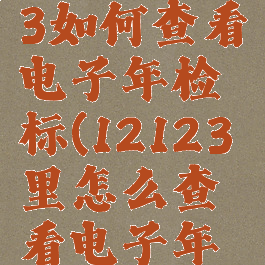 3如何查看
电子年检
标(12123
里怎么查
看电子年